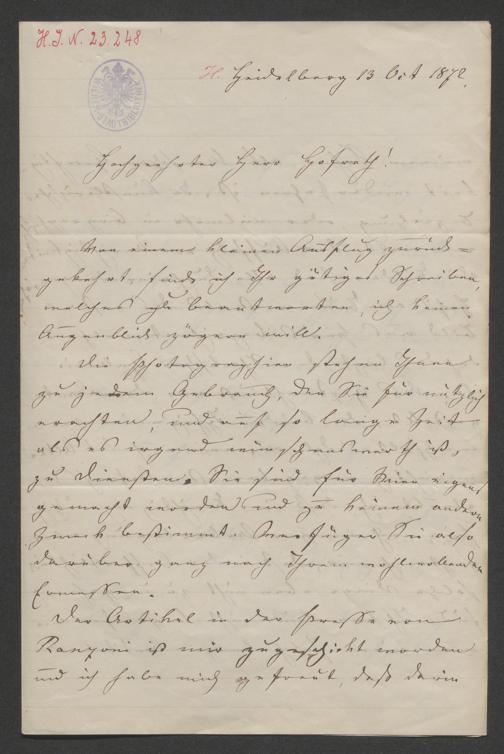 H. I. N. 23.248
WIENER STADTBIBLIOTHEK
H. Heidelberg 13 Oct 1872.
Hochgeehrter Herr Hofrath!
Von einem kleinen Ausflug zurück-
gekehrt, finde ich Ihr gütiges Schreiben,
welches zu beantworten, ich keinen
Augenblick zögern will.
Die Photographien stehen Ihnen
zu jedem Gebrauch, den Sie für nützlich
erachten, und auf so lange Zeit
als es irgend wünschenswerth ist,
zu Diensten. Sie sind für Wien eigens
gemacht worden und zu keinem andern
Zweck bestimmt. Verfügen Sie also
darüber ganz nach Ihrem wohlwollenden
Ermessen.
Der Artikel in der Presse von
Ranzoni ist mir zugeschickt worden
und ich habe mich gefreut, daß darin